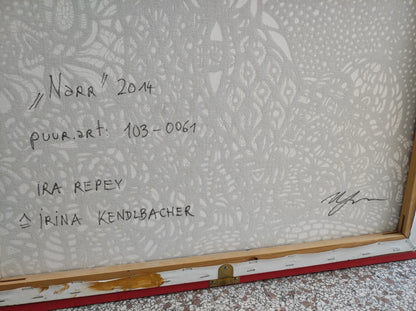 „Narr” 2014
puur.art: 103-0061
IRA REPEY
≙ IRINA KENDLBACHER